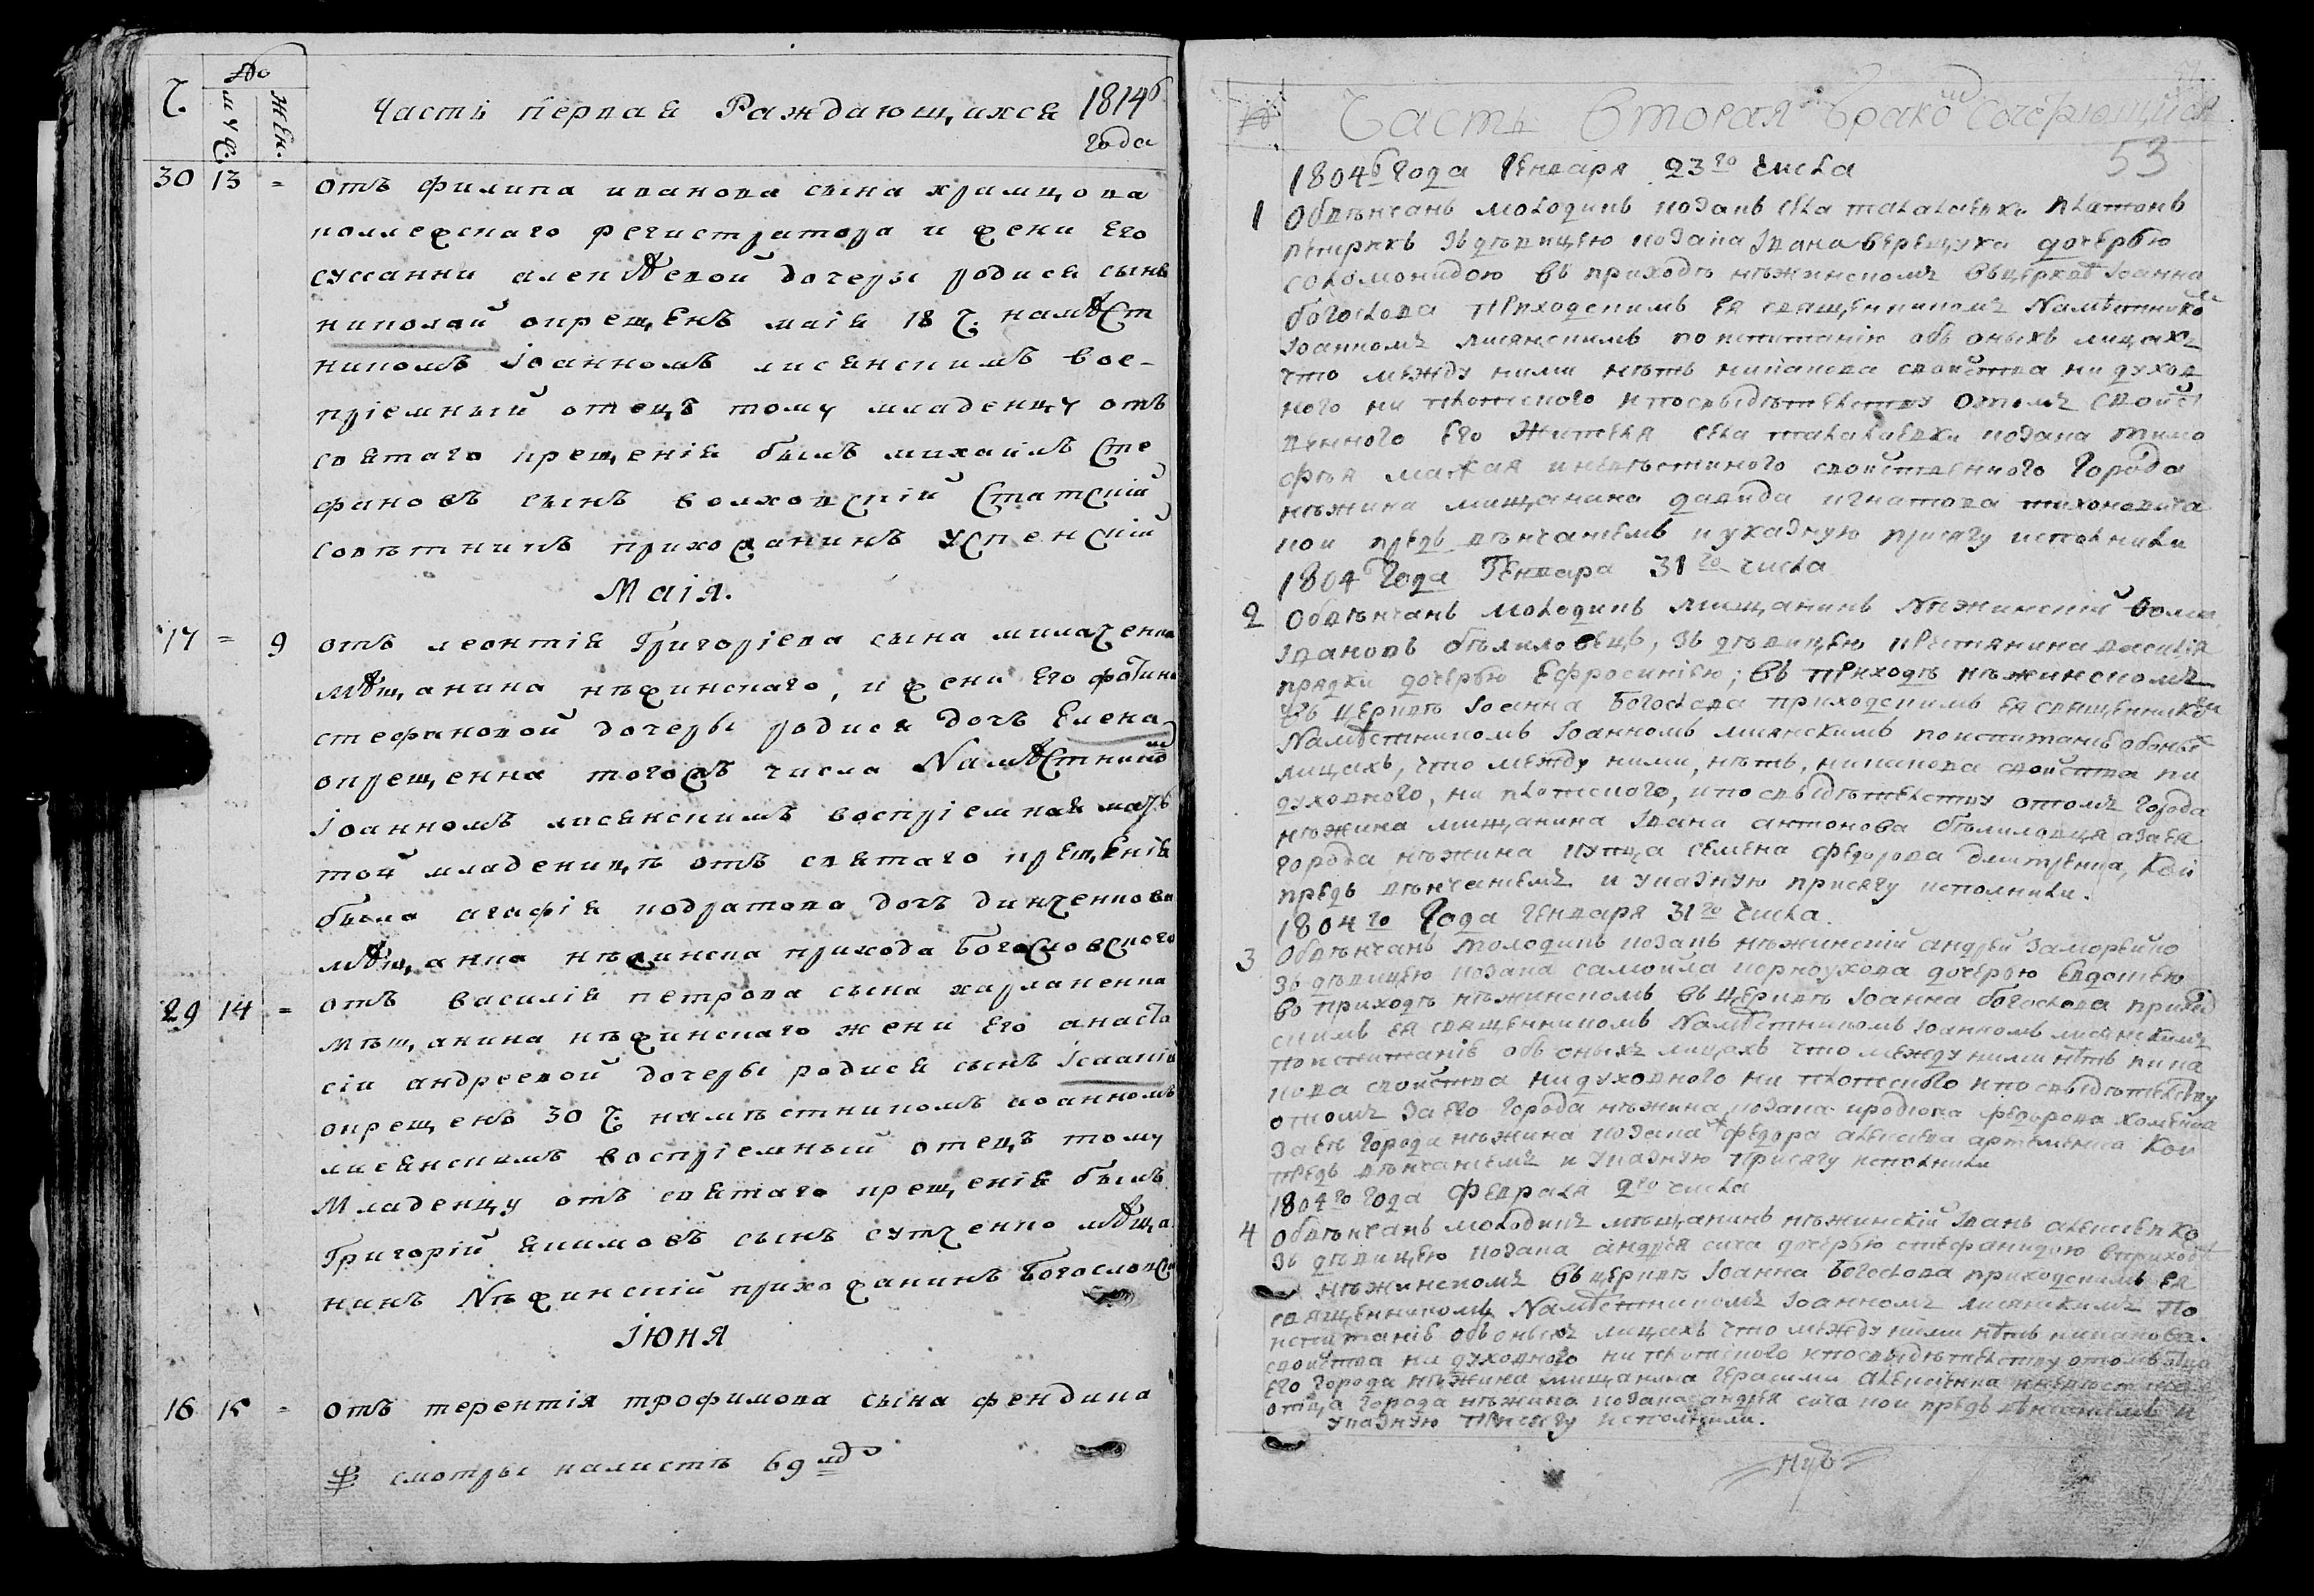 Ч. № муж. жен.
Часть первая Раждающихся 1814г
года
30 13 = отъ филипа иванова сына храмцова
коллежскаго регистратора и жени Его
сусанни алеѯѣевой дочеры родися сынъ
николай окрещенъ маія 18 ч. намѣст
никомъ Іоанномъ лисянскимъ вос-
пріемный отецъ тому младенцу отъ
святаго крещенія былъ михаилъ Сте
фановъ сынъ волховскій Статскій
совѣтникъ прихожанинъ успенскій
Маія.
17 = 9 отъ леонтія Григоріева сына
мѣщанина нѣжинскаго, и жени Его фотини
стефановой дочеры родися дочъ Елена
окрещенна тогожъ числа Намѣстнико
Іоанномъ лисянскимъ воспріемная мать
той младеницѣ отъ святаго крещенія
была агафія кодратова дочъ
мѣщанка нѣжинска прихода Богословского
29 14 = отъ василія петрова сына харланенка
мѣщанина нѣжинскаго жени Его анаста
сіи андреевой дочеры родися сынъ Ісаакій
окрещенъ 30 ч. намѣстникомъ иоанномъ
лисянскимъ воспріемный отецъ тому
Младенцу отъ святаго крещенія былъ
Григорій якимовъ сынъ сутченко мѣща
нинъ Нѣжинскій прихожанинъ Богословск
Іюня
16 15 - отъ терентія трофимова сына фендика
смотры налистѣ 69м
Часть Вторая Бракомъ Сочетающихся
53
1804г года Генваря 23го числа
1 Обвѣнчанъ молодикъ козакъ села талалаевки платонъ
петрикъ зъ дѣвицею козака Івана берещука дочерью
соломонидою въ приходѣ нѣжинскомъ въ церквѣ Іоанна
богослова приходскимъ ея священникомъ Намѣстнико
Іоанномъ лисянскимъ по испитанію объ оныхъ лицахъ
что между ними нѣтъ никакова свойства ни духов
ного ни плотского и по свыдѣтелству о томъ свойст
венного Его Жителя села талалаевки козака тимо
фѣя и невѣстиного свойственного Города
нѣжина мищанина давида игнатова тихоновича
кои предъ вѣнчаніемъ и указную присягу исполнили
1804 Года Генвара 31го числа
2 Обвѣнчанъ молодикъ мищанинъ Нѣжинскій
Івановъ бѣлиловецъ, зъ дѣвицею крестянина василія
прядки дочерью Ефросиніею; въ приходѣ нѣжинскомъ
въ церквѣ Іоанна Богослова приходскимъ ея священнико
Намѣстникомъ Іоанномъ лисянскимъ по испитаніѣ о оных
лицахъ, что между ними, нѣтъ, никакова свойства ни
духовного, ни плотского, и по свыдѣтелству о томъ города
нѣжина мищанина Івана антонова бѣлиловця а за ея
города нѣжина купца семена федорова дмитренка, кои
предъ вѣнчаніемъ и указную присягу исполнили.
1804го Года Генваря 31го числа.
3 Обвѣнчанъ молодикъ козакъ нѣжинскій андрей
зъ дѣвицею козака самойла дочерью Евдокіею
въ приходѣ нѣжинскомъ въ церквѣ Іоанна богослова приход
скимъ ея священникомъ Намѣстникомъ Іоанномъ лисянскимъ
по испитаніѣ объ оныхъ лицахъ что между ними нѣтъ ника
кова свойства ни духовного ни плотского и по свыдѣтелству
о томъ за его города нѣжина козака федорова
за ея города нѣжина козака федора алексѣева артеменка кои
предъ вѣнчаніемъ и указную присягу исполнили
1804го года февраля 2го числа
4 обвѣнчанъ молодикъ мѣщанинъ нѣжинскій Іванъ алексѣенко
зъ дѣвицею козака андрея сича дочерью стефанидою въ приходѣ
нѣжинскомъ въ церквѣ Іоанна Богослова приходскимъ ея
священникомъ Намѣстникомъ Іоанномъ лисянскимъ по
испитаніѣ объ оныхъ лицахъ что между ними нѣтъ никакова.
свойства ни духовного ни плотского и по свыдѣтелству о томъ отца
его города нѣжина мищанина герасима алексѣенка
отца города нѣжина козака андрея сича кои предъ вѣнчаніемъ и
указную присягу исполнили.